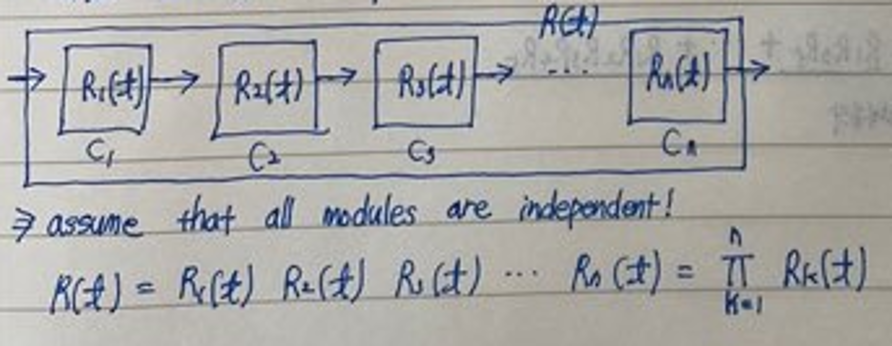 R(t)
→ R₁(t) → R₂(t) → R₃(t) → ... Rₙ(t) →
C₁ C₂ C₃ Cₙ
⇒ assume that all modules are independent!
R(t) = R₁(t) R₂(t) R₃(t) ... Rₙ(t) = n∏k=1 Rk(t)